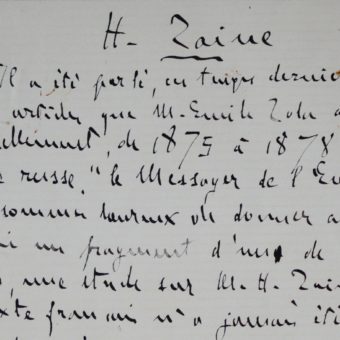 H. Taine
Il a été parlé, ces temps dernie
articles que M. Emile Zola a
ellement, de 1875 à 1878
e russe, "le Messager de l'Eu
sommes heureux de donner a
i un fragment d'une de
, une étude sur M. H. Tain
xte français n'a jamais été